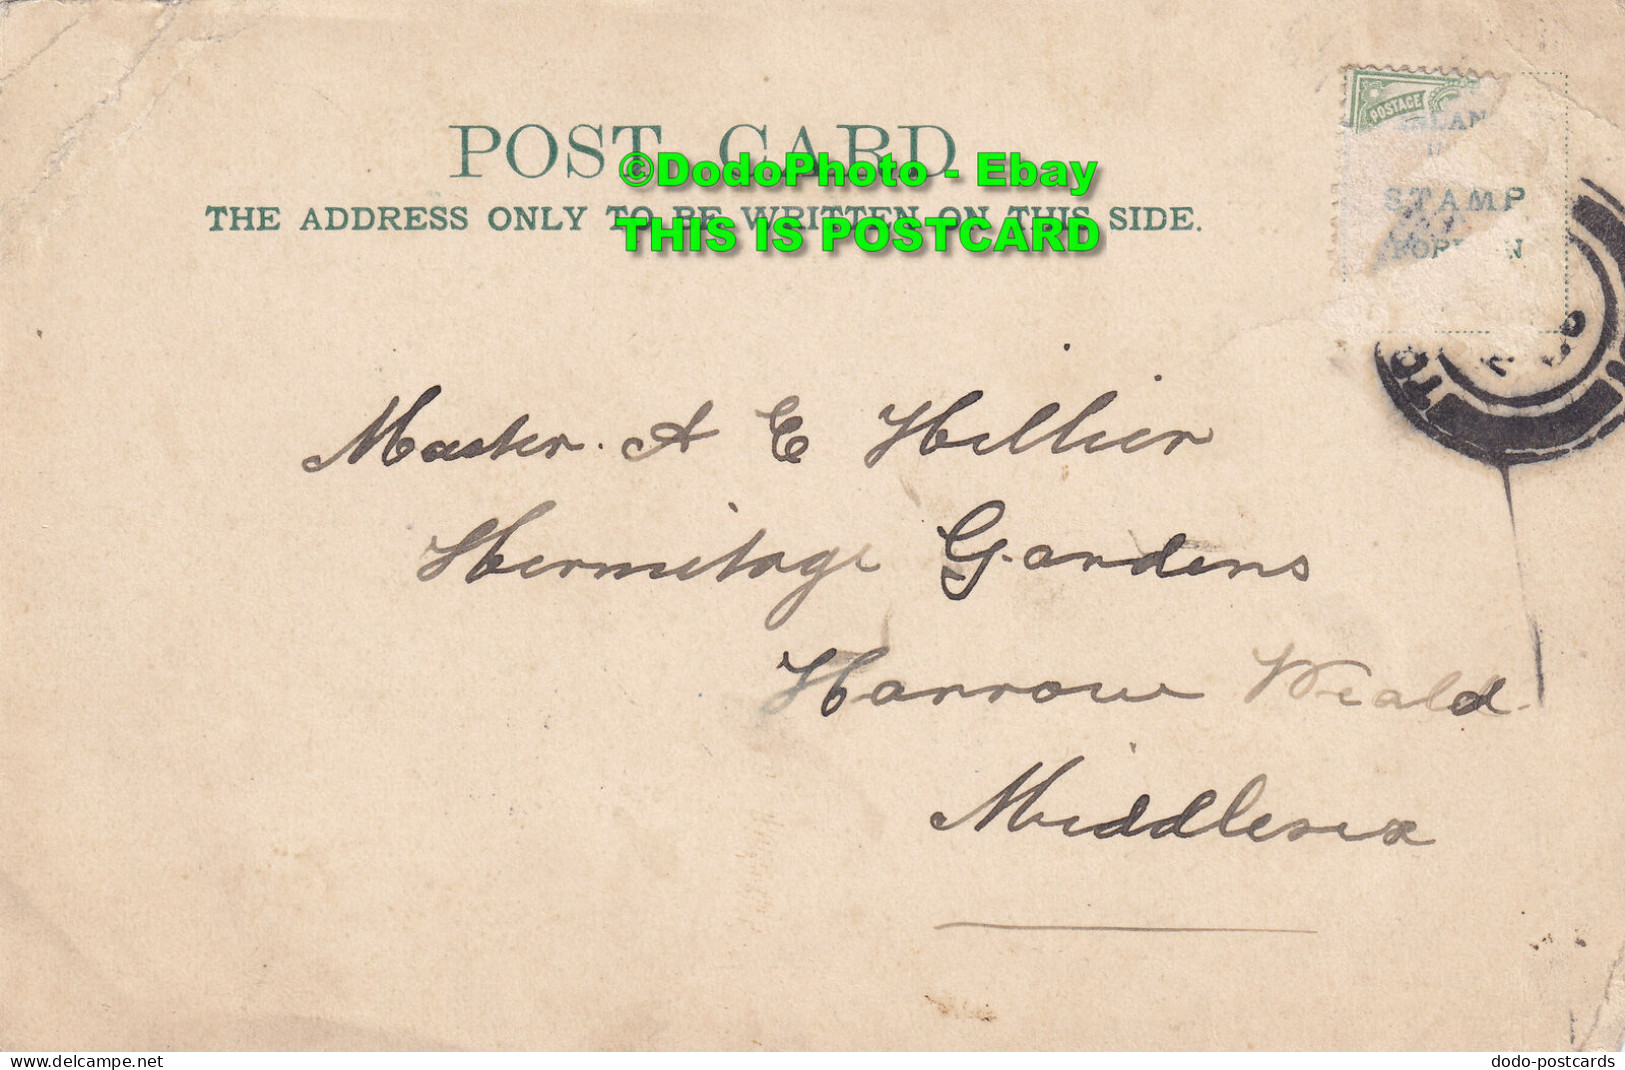 POST CARD
THE ADDRESS ONLY TO BE WRITTEN ON THIS SIDE.
©DodoPhoto - Ebay
THIS IS POSTCARD
POSTAGE
STAMP
Master. A E Hillier
Hermitage Gardens
Harrow Weald.
Middlesex
delcampe.net
dodo-postcards